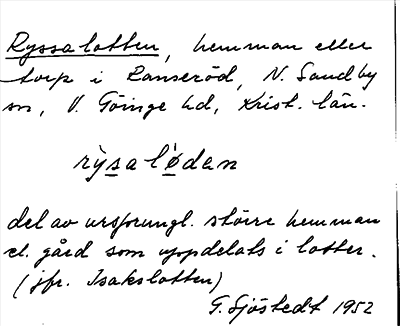 Ryssalotten, hemman eller
torp i Ranseröd, N. Sandby
sn, V. Göinge hd, Krist. län.
rỳsalö́dan
del av ursprungl. större hemman
el. gård som uppdelats i lotter.
(jfr. Isakslotten)
G. Sjöstedt 1952